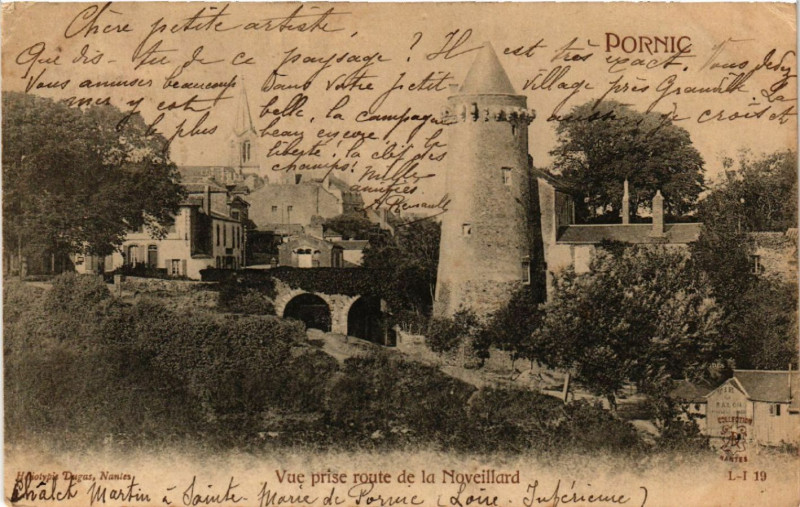 Chère petite artiste,
PORNIC
Que dis-tu de ce paysage? Il est très exact. Vous devez
vous amuser beaucoup dans votre petit village près Granville. La
mer y est belle, la campagne aussi de croiset
le plus beau encore. la
liberté! la clef des
champs! Mille
amitiés.
Héliotypie Dugas, Nantes
Vue prise route de la Noveillard
L-I 19
COLLECTION
NANTES
Châlet Martin à Sainte-Marie de Pornic (Loire-Inférieure)